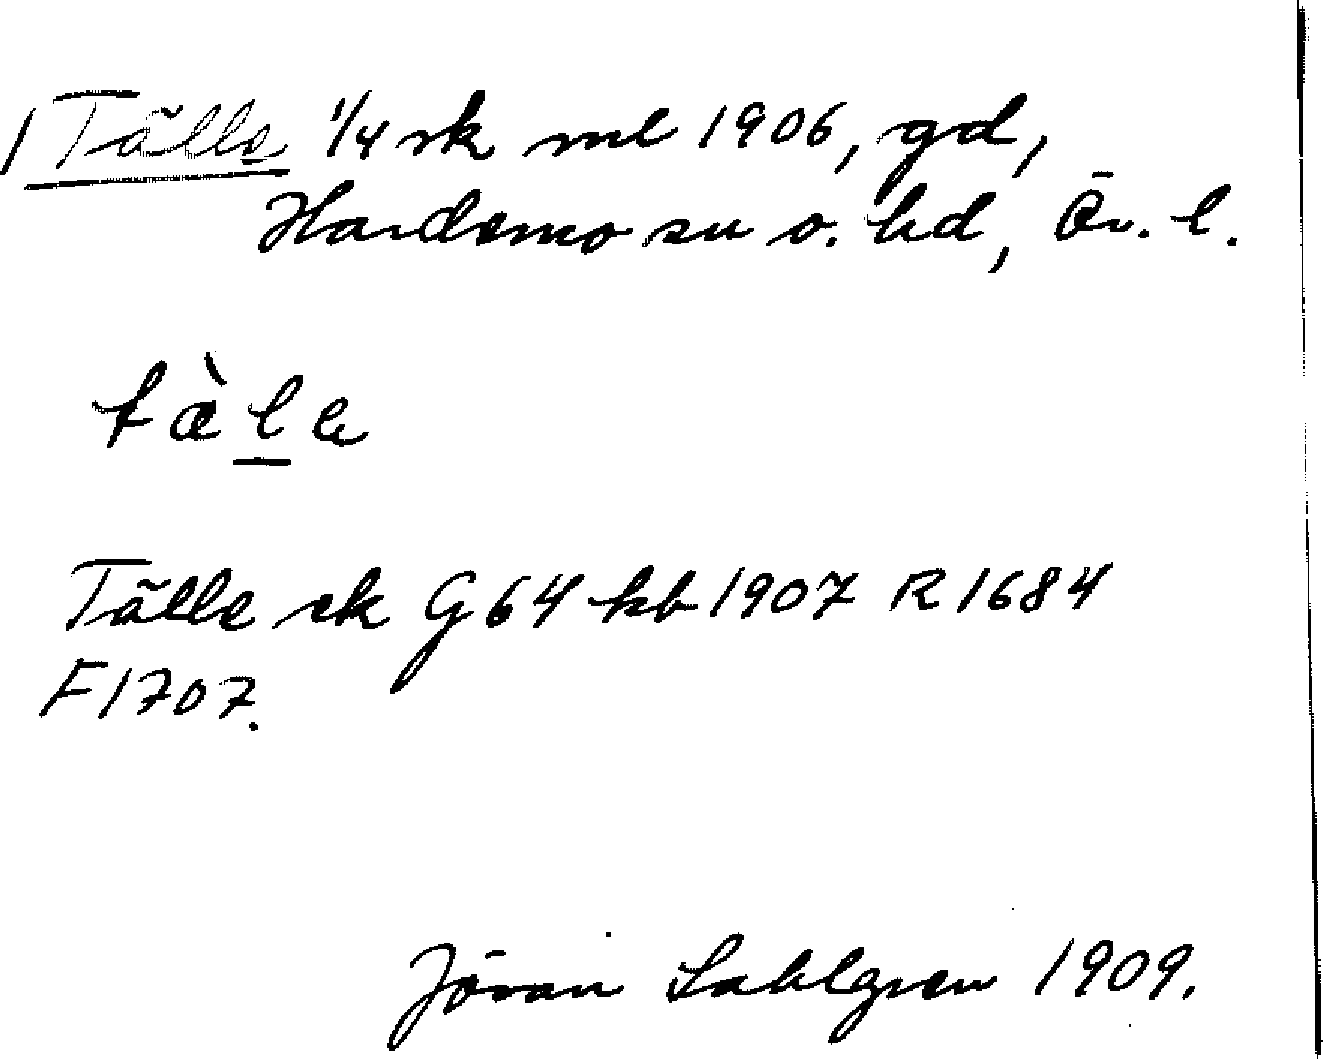 Tälle 1/4 sk ml 1906, gd,
Hardemo sn o. hd, Ör. l.
tàle
Tälle sk G 64 kb 1907 R 1684
F 1707.
Jöran Sahlgren 1909.